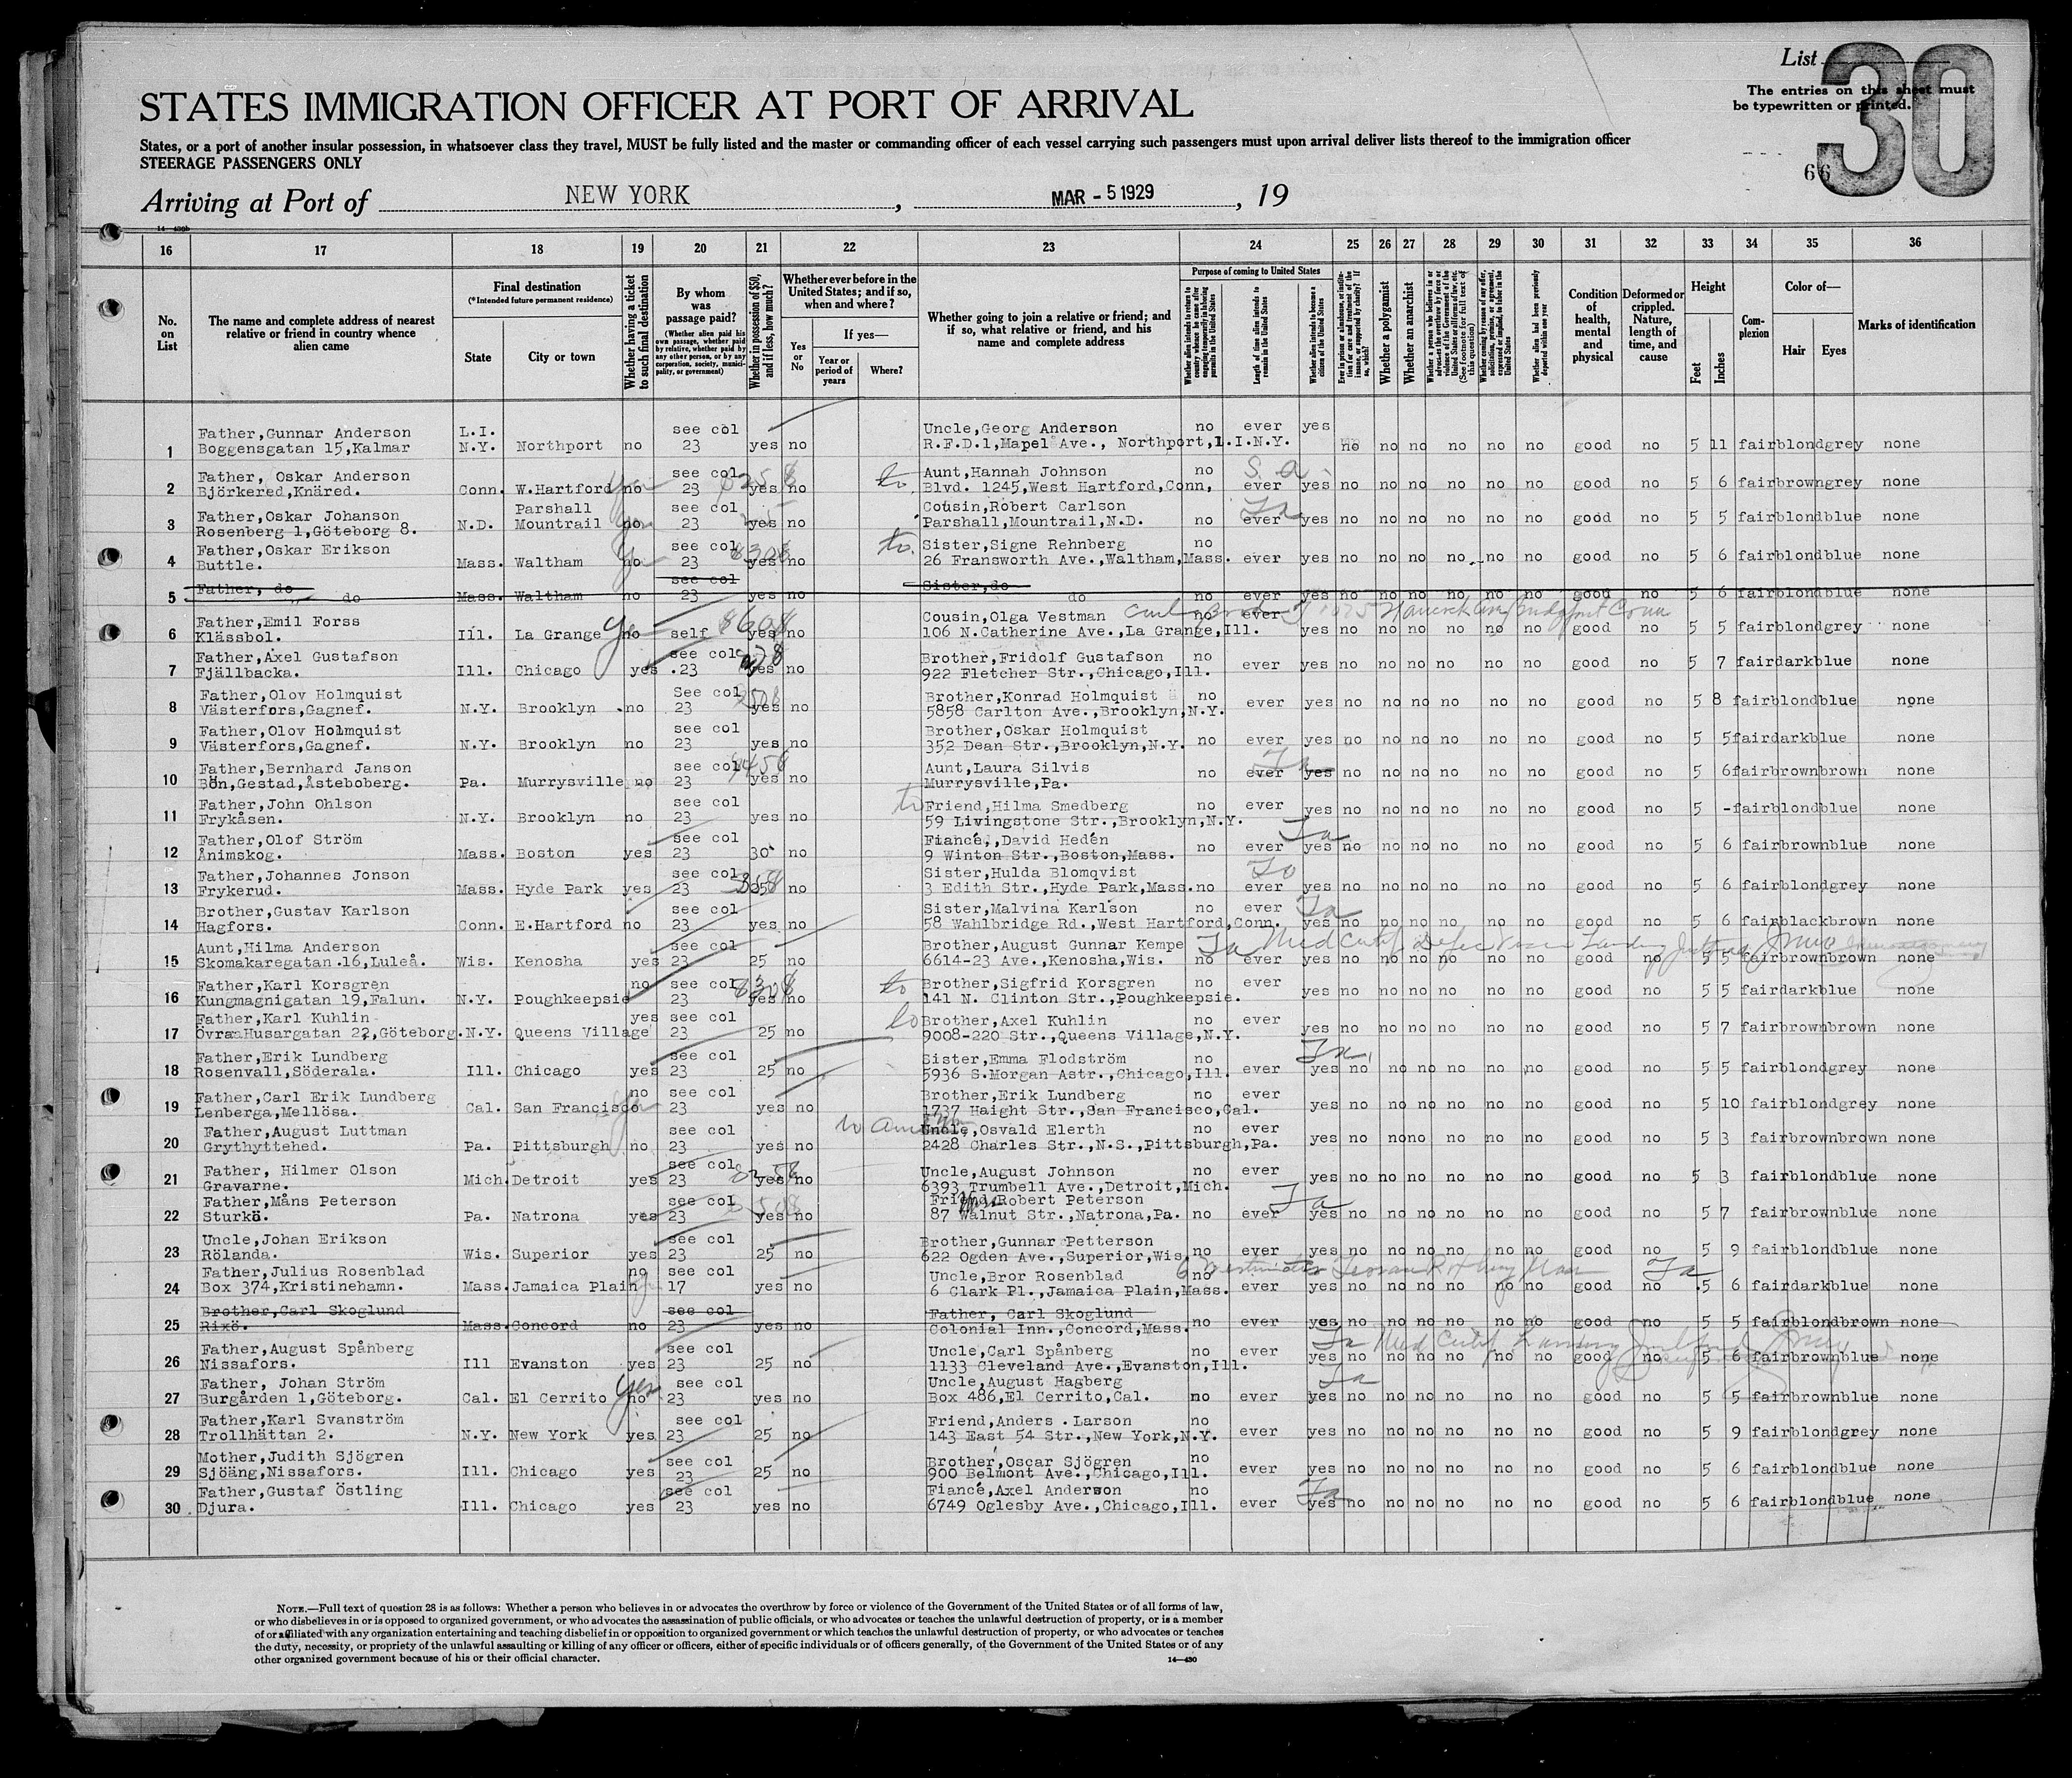 List 30
The entries on this sheet must
be typewritten or printed.
66
STATES IMMIGRATION OFFICER AT PORT OF ARRIVAL
States, or a port of another insular possession, in whatsoever class they travel, MUST be fully listed and the master or commanding officer of each vessel carrying such passengers must upon arrival deliver lists thereof to the immigration officer
STEERAGE PASSENGERS ONLY
Arriving at Port of NEW YORK, MAR - 5 1929, 19
16 17 18 19 20 21 22 23 24 25 26 27 28 29 30 31 32 33 34 35 36
No. on List
The name and complete address of nearest relative or friend in country whence alien came
Final destination
(*Intended future permanent residence)
State
City or town
Whether having a ticket to such final destination
By whom was passage paid?
(Whether alien paid his own passage, whether paid by relative, whether paid by any other person, or by any corporation, society, municipality, or government)
Whether in possession of $50, and if less, how much?
Whether ever before in the United States; and if so, when and where?
Yes or No
If yes—
Year or period of years
Where?
Whether going to join a relative or friend; and if so, what relative or friend, and his name and complete address
Purpose of coming to United States
Length of time alien intends to remain in the United States
Whether alien intends to become a citizen of the United States
Whether a polygamist
Whether an anarchist
Condition of health, mental and physical
Deformed or crippled. Nature, length of time, and cause
Height
Feet
Inches
Complexion
Color of—
Hair
Eyes
Marks of identification
1 Father,Gunnar Anderson L.I. see col Uncle,Georg Anderson no ever yes
Boggensgatan 15,Kalmar N.Y. Northport no 23 yes no R.F.D.1,Mapel Ave., Northport,L.I.N.Y. no no no no no no good no 5 11 fair blond grey none
2 Father, Oskar Anderson see col Aunt,Hannah Johnson no
Björkered,Knäred. Conn. W.Hartford no 23 yes no Blvd. 1245,West Hartford,Conn, ever yes no no no no no no good no 5 6 fair brown grey none
3 Father,Oskar Johanson Parshall see col Cousin,Robert Carlson
Rosenberg 1,Göteborg 8. N.D. Mountrail no 23 yes no Parshall,Mountrail,N.D. no ever yes no no no no no no good no 5 5 fair blond blue none
4 Father,Oskar Erikson see col Sister,Signe Rehnberg no
Buttle. Mass. Waltham no 23 yes no 26 Fransworth Ave.,Waltham,Mass. ever yes no no no no no no good no 5 6 fair blond blue none
5 Father, do see col Sister,do
do Mass. Waltham no 23 yes no do no ever yes no no no no no no good no 5 6 fair blond blue none
6 Father,Emil Forss Cousin,Olga Vestman no ever
Klässbol. Ill. La Grange no self yes no 106 N.Catherine Ave.,La Grange,Ill. yes no no no no no no good no 5 5 fair blond grey none
7 Father,Axel Gustafson see col Brother,Fridolf Gustafson no
Fjällbacka. Ill. Chicago yes 23 yes no 922 Fletcher Str.,Chicago,Ill. ever yes no no no no no no good no 5 7 fair dark blue none
8 Father,Olov Holmquist See col Brother,Konrad Holmquist no
Västerfors,Gagnef. N.Y. Brooklyn no 23 yes no 5858 Carlton Ave.,Brooklyn,N.Y. ever yes no no no no no no good no 5 8 fair blond blue none
9 Father,Olov Holmquist see col Brother,Oskar Holmquist
Västerfors,Gagnef. N.Y. Brooklyn no 23 yes no 352 Dean Str.,Brooklyn,N.Y. no ever yes no no no no no no good no 5 5 fair dark blue none
10 Father,Bernhard Janson see col Aunt,Laura Silvis
Bön,Gestad,Åsteboberg. Pa. Murrysville no 23 yes no Murrysville,Pa. no ever yes no no no no no no good no 5 6 fair brown brown none
11 Father,John Ohlson see col Friend,Hilma Smedberg no ever
Frykåsen. N.Y. Brooklyn no 23 yes no 59 Livingstone Str.,Brooklyn,N.Y. yes no no no no no no good no 5 - fair blond blue none
12 Father,Olof Ström see col Fiancé,,David Hedén
Ånimskog. Mass. Boston yes 23 30 no 9 Winton Str.,Boston,Mass. no ever yes no no no no no no good no 5 6 fair brown blue none
13 Father,Johannes Jonson see col Sister,Hulda Blomqvist
Frykerud. Mass. Hyde Park yes 23 no 3 Edith Str.,Hyde Park,Mass. no ever yes no no no no no no good no 5 6 fair blond grey none
14 Brother,Gustav Karlson see col Sister,Malvina Karlson no ever
Hagfors. Conn. E.Hartford no 23 yes no 58 Wahlbridge Rd.,West Hartford,Conn. yes no no no no no no good no 5 6 fair black brown none
15 Aunt,Hilma Anderson see col Brother,August Gunnar Kempe
Skomakaregatan 16,Luleå. Wis. Kenosha yes 23 25 no 6614-23 Ave.,Kenosha,Wis. no ever yes no no no no no no good no 5 5 fair brown brown none
16 Father,Karl Korsgren no see col Brother,Sigfrid Korsgren no ever
Kungmagnigatan 19,Falun. N.Y. Poughkeepsie 23 yes no 141 N. Clinton Str.,Poughkeepsie. yes no no no no no no good no 5 5 fair dark blue none
17 Father,Karl Kuhlin yes see col Brother,Axel Kuhlin no ever
Övra Husargatan 22,Göteborg. N.Y. Queens Village 23 25 no 9008-220 Str.,Queens Village,N.Y. yes no no no no no no good no 5 7 fair brown brown none
18 Father,Erik Lundberg see col Sister,Emma Flodström no
Rosenvall,Söderala. Ill. Chicago yes 23 25 no 5936 S.Morgan Astr.,Chicago,Ill. ever yes no no no no no no good no 5 5 fair blond grey none
19 Father,Carl Erik Lundberg no see col Brother,Erik Lundberg no ever
Lenberga,Mellösa. Cal. San Francisco 23 yes no 1737 Haight Str.,San Francisco,Cal. yes no no no no no no good no 5 10 fair blond grey none
20 Father,August Luttman see col Uncle,Osvald Elerth no ever
Grythyttehed. Pa. Pittsburgh no 23 yes no 2428 Charles Str.,N.S.,Pittsburgh,Pa. yes no no no no no no good no 5 3 fair brown brown none
21 Father, Hilmer Olson see col Uncle,August Johnson no ever
Gravarne. Mich. Detroit yes 23 yes no 6393 Trumbell Ave.,Detroit,Mich. yes no no no no no no good no 5 3 fair blond blue none
22 Father,Måns Peterson see col Friend,Robert Peterson
Sturkö. Pa. Natrona yes 23 yes no 87 Walnut Str.,Natrona,Pa. no ever yes no no no no no no good no 5 7 fair brown blue none
23 Uncle,Johan Erikson see col Brother,Gunnar Petterson
Rölanda. Wis. Superior yes 23 25 no 622 Ogden Ave.,Superior,Wis. no ever yes no no no no no no good no 5 9 fair blond blue none
24 Father,Julius Rosenblad no see col Uncle,Bror Rosenblad no
Box 374,Kristinehamn. Mass. Jamaica Plain 17 yes no 6 Clark Pl.,Jamaica Plain,Mass. ever yes no no no no no no good no 5 6 fair dark blue none
25 Brother,Carl Skoglund see col Father, Carl Skoglund
Rixö. Mass. Concord no 23 yes no Colonial Inn.,Concord,Mass. no ever yes no no no no no no good no 5 5 fair blond brown none
26 Father,August Spånberg see col Uncle,Carl Spånberg no ever
Nissafors. Ill Evanston yes 23 25 no 1133 Cleveland Ave.,Evanston,Ill. yes no no no no no no good no 5 6 fair brown blue none
27 Father, Johan Ström see col Uncle,August Hagberg
Burgården 1,Göteborg. Cal. El Cerrito no 23 yes no Box 486,El Cerrito,Cal. no ever yes no no no no no no good no 5 5 fair brown blue none
28 Father,Karl Svanström see col Friend,Anders . Larson no
Trollhättan 2. N.Y. New York yes 23 25 no 143 East 54 Str.,New York,N.Y. ever yes no no no no no no good no 5 9 fair blond grey none
29 Mother,Judith Sjögren see col Brother,Oscar Sjögren no
Sjöäng,Nissafors. Ill. Chicago yes 23 25 no 900 Belmont Ave.,Chicago,Ill. ever yes no no no no no no good no 5 6 fair blond blue none
30 Father,Gustaf Östling see col Fiancé,Axel Anderson no
Djura. Ill. Chicago yes 23 yes no 6749 Oglesby Ave.,Chicago,Ill. ever yes no no no no no no good no 5 6 fair blond blue none
NOTE.—Full text of question 28 is as follows: Whether a person who believes in or advocates the overthrow by force or violence of the Government of the United States or of all forms of law,
or who disbelieves in or is opposed to organized government, or who advocates the assassination of public officials, or who advocates or teaches the unlawful destruction of property, or is a member
of or affiliated with any organization entertaining and teaching disbelief in or opposition to organized government or which teaches the unlawful destruction of property, or who advocates or teaches
the duty, necessity, or propriety of the unlawful assaulting or killing of any officer or officers, either of specific individuals or of officers generally, of the Government of the United States or of any
other organized government because of his or their official character.
14—430